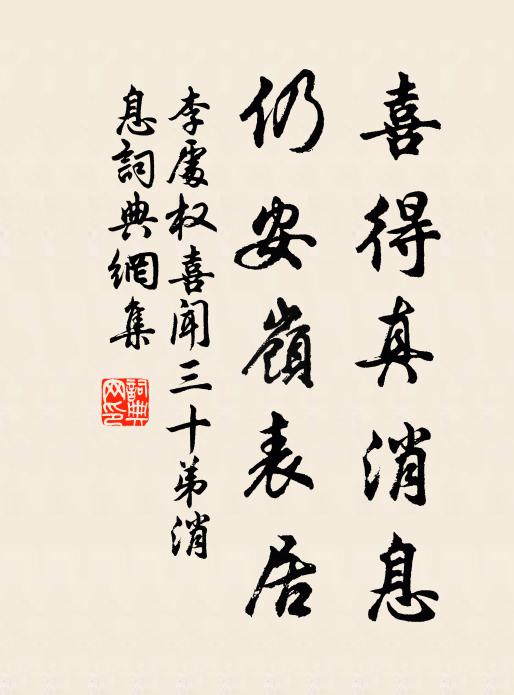 喜得真消息
仍安嶺表居
李處权喜闻三十弟消
息詞典網集
詞典
网印